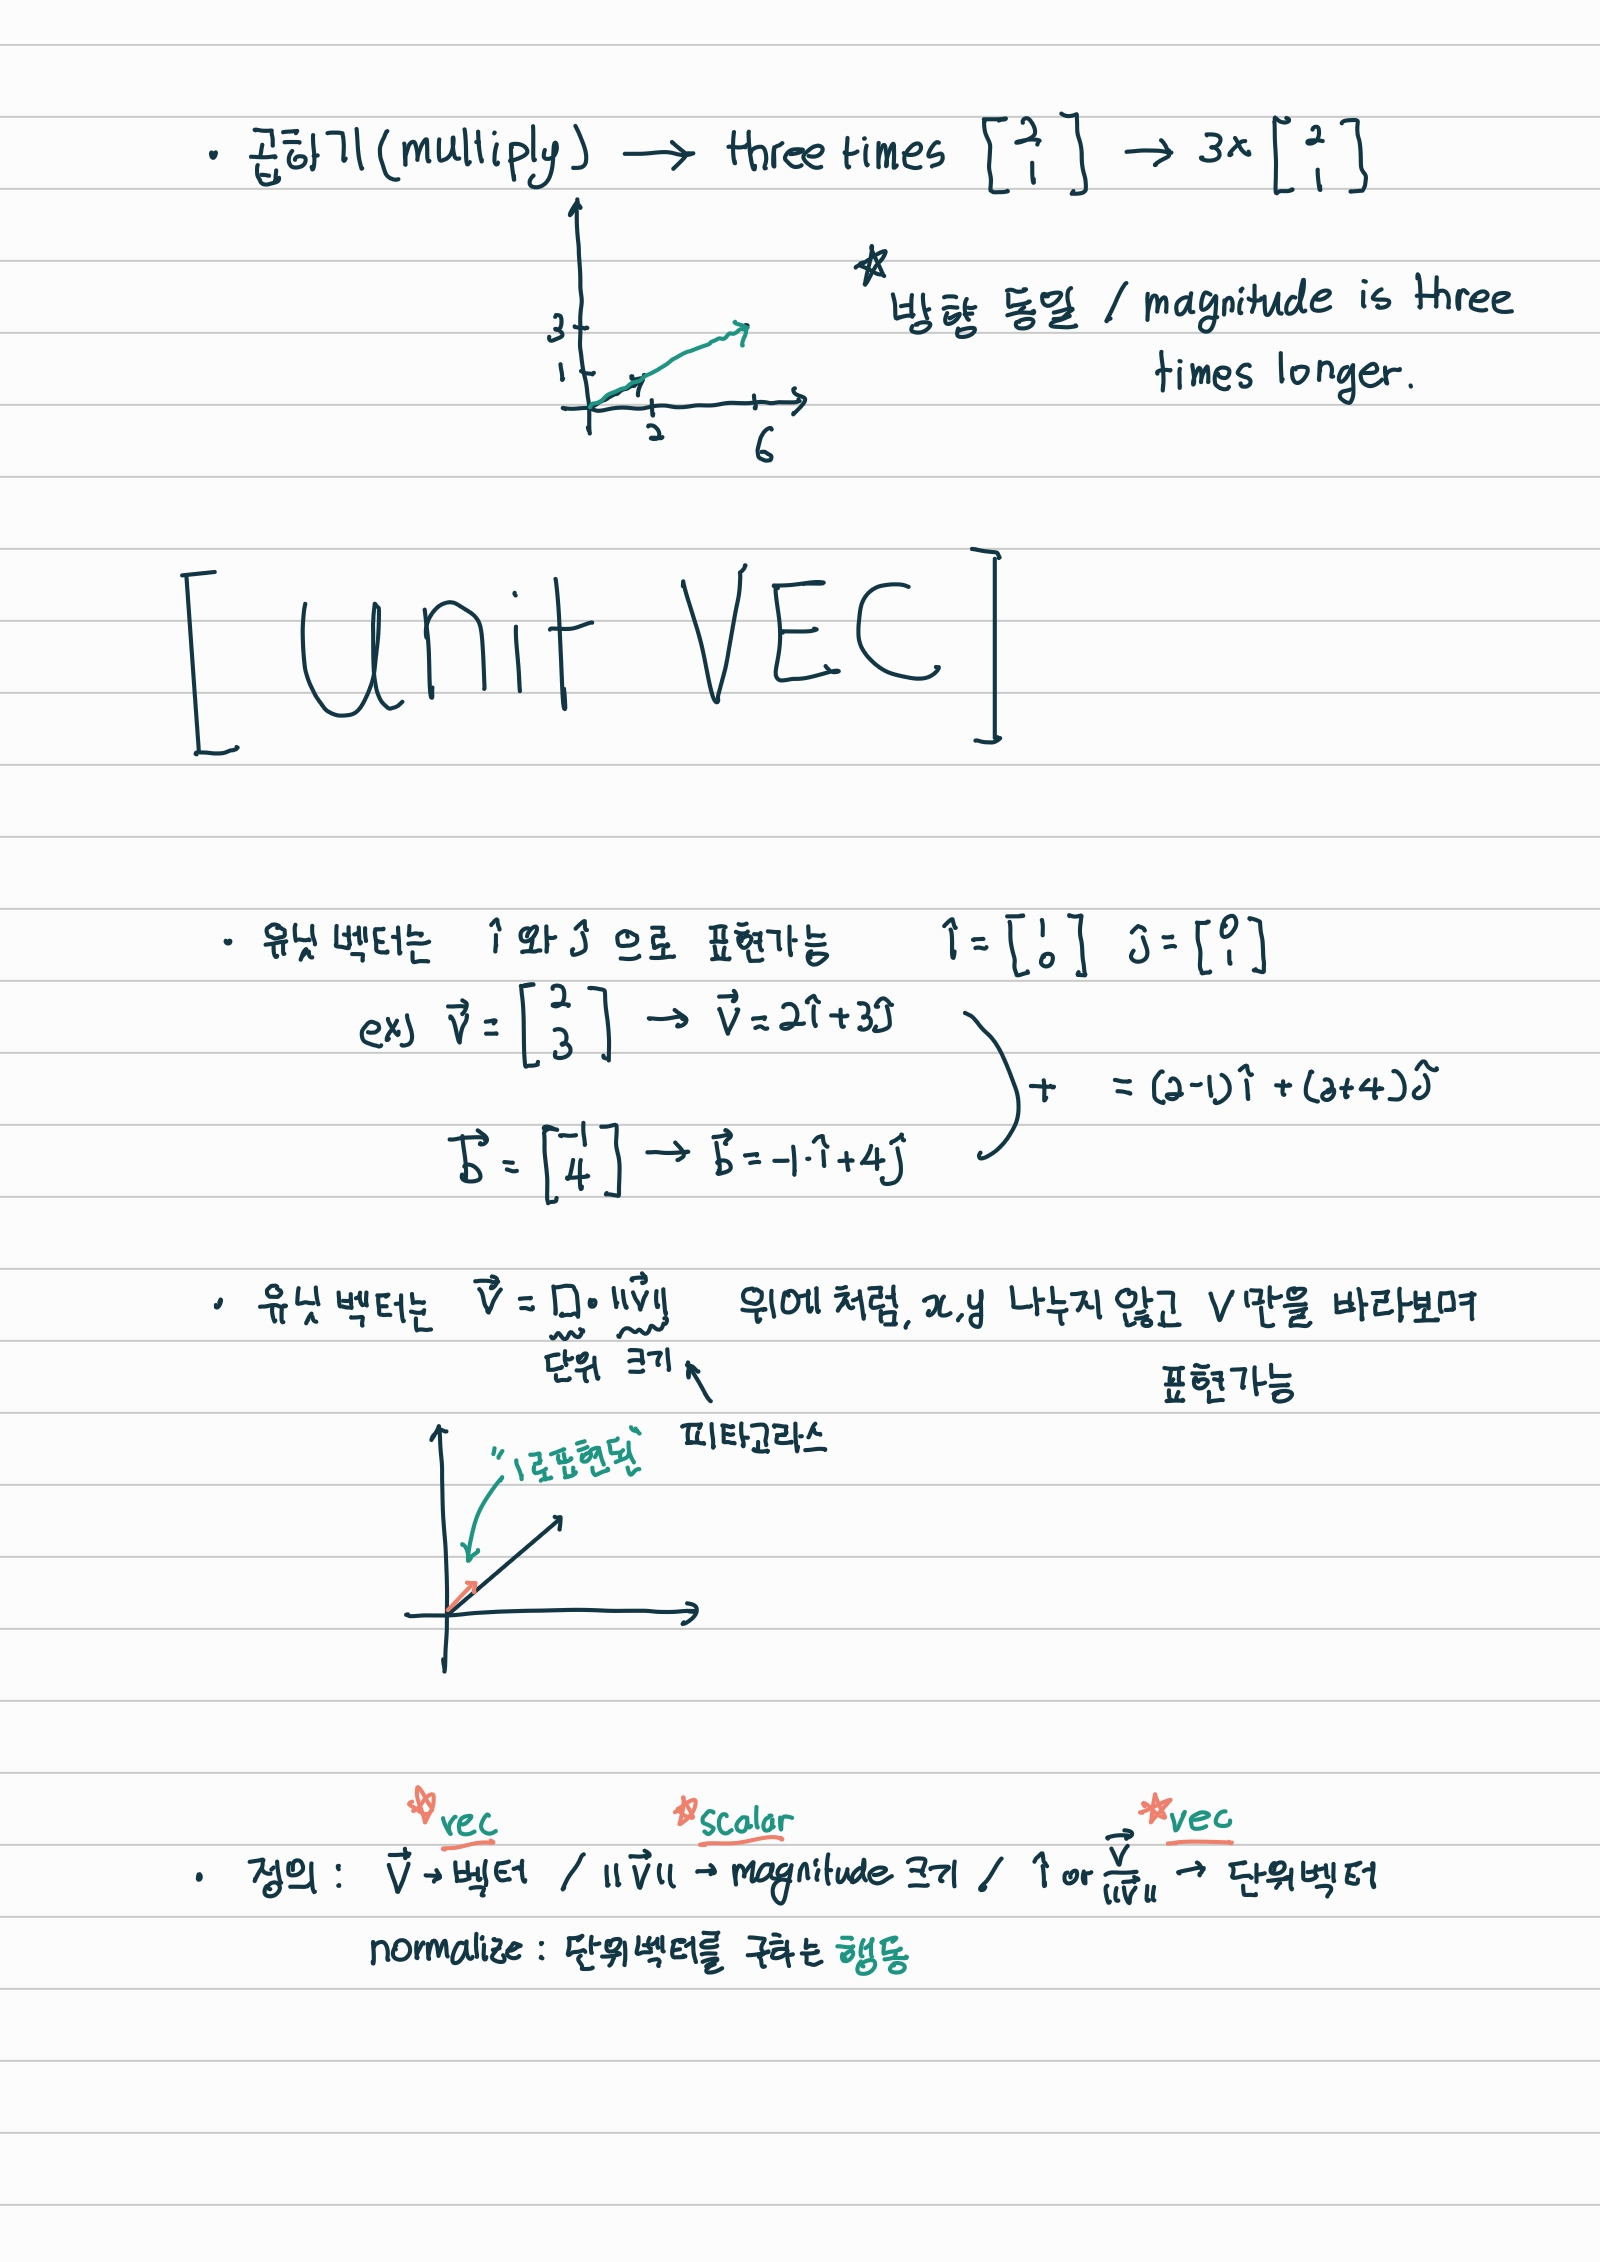 · 곱하기(multiply) → three times [2 1] → 3x [2 1]
☆ 방향 동일 / magnitude is three
times longer.
3
1
2
6
[unit VEC]
· 유닛 벡터는 î 와 ĵ 으로 표현가능 î = [1 0] ĵ = [0 1]
ex) v⃗ = [2 3] → v⃗ = 2î + 3ĵ
+ = (2-1)î + (2+4)ĵ
b⃗ = [-1 4] → b⃗ = -1·î + 4ĵ
· 유닛 벡터는 v⃗ = □·||v⃗|| 위에 처럼, x,y 나누지 않고 V 만을 바라보며
단위 크기
표현가능
피타고라스
"1로표현된"
☆vec ☆scalar ☆vec
· 정의 : v⃗ → 벡터 / ||v⃗|| → magnitude 크기 / î or v⃗/||v⃗|| → 단위벡터
normalize : 단위벡터를 구하는 행동